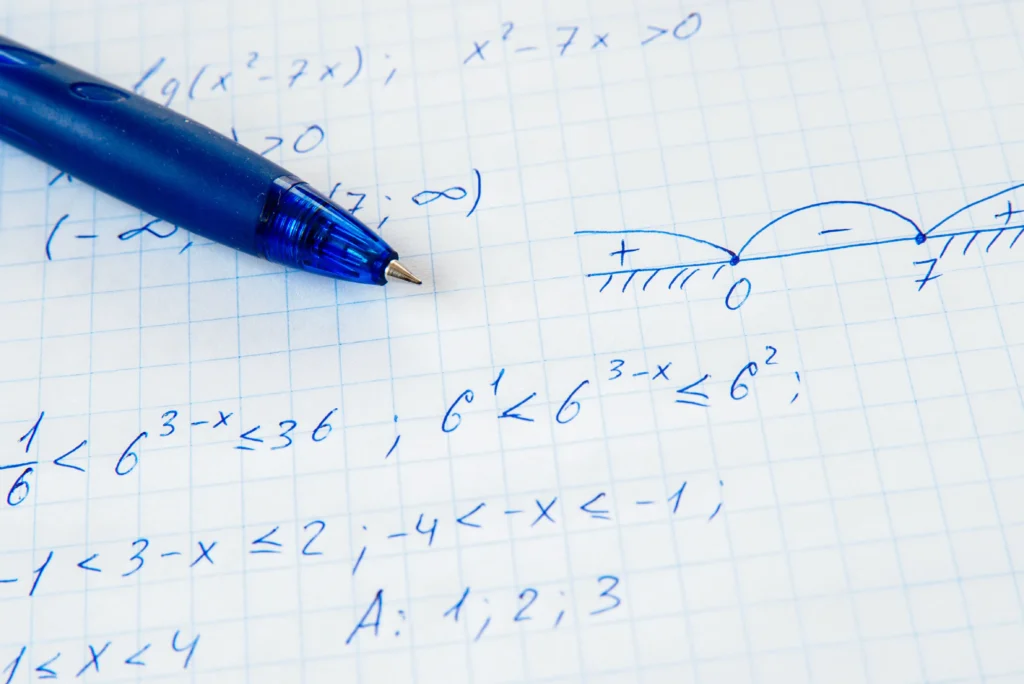 lg(x²-7x); x²-7x >0
>0
(-∞; (7; ∞)
+ - +
0 7
1/6 < 6³⁻ˣ ≤ 36 ; 6¹ < 6³⁻ˣ ≤ 6² ;
-1 < 3-x ≤ 2 ; -4 < -x ≤ -1 ;
1 ≤ x < 4 A: 1; 2; 3